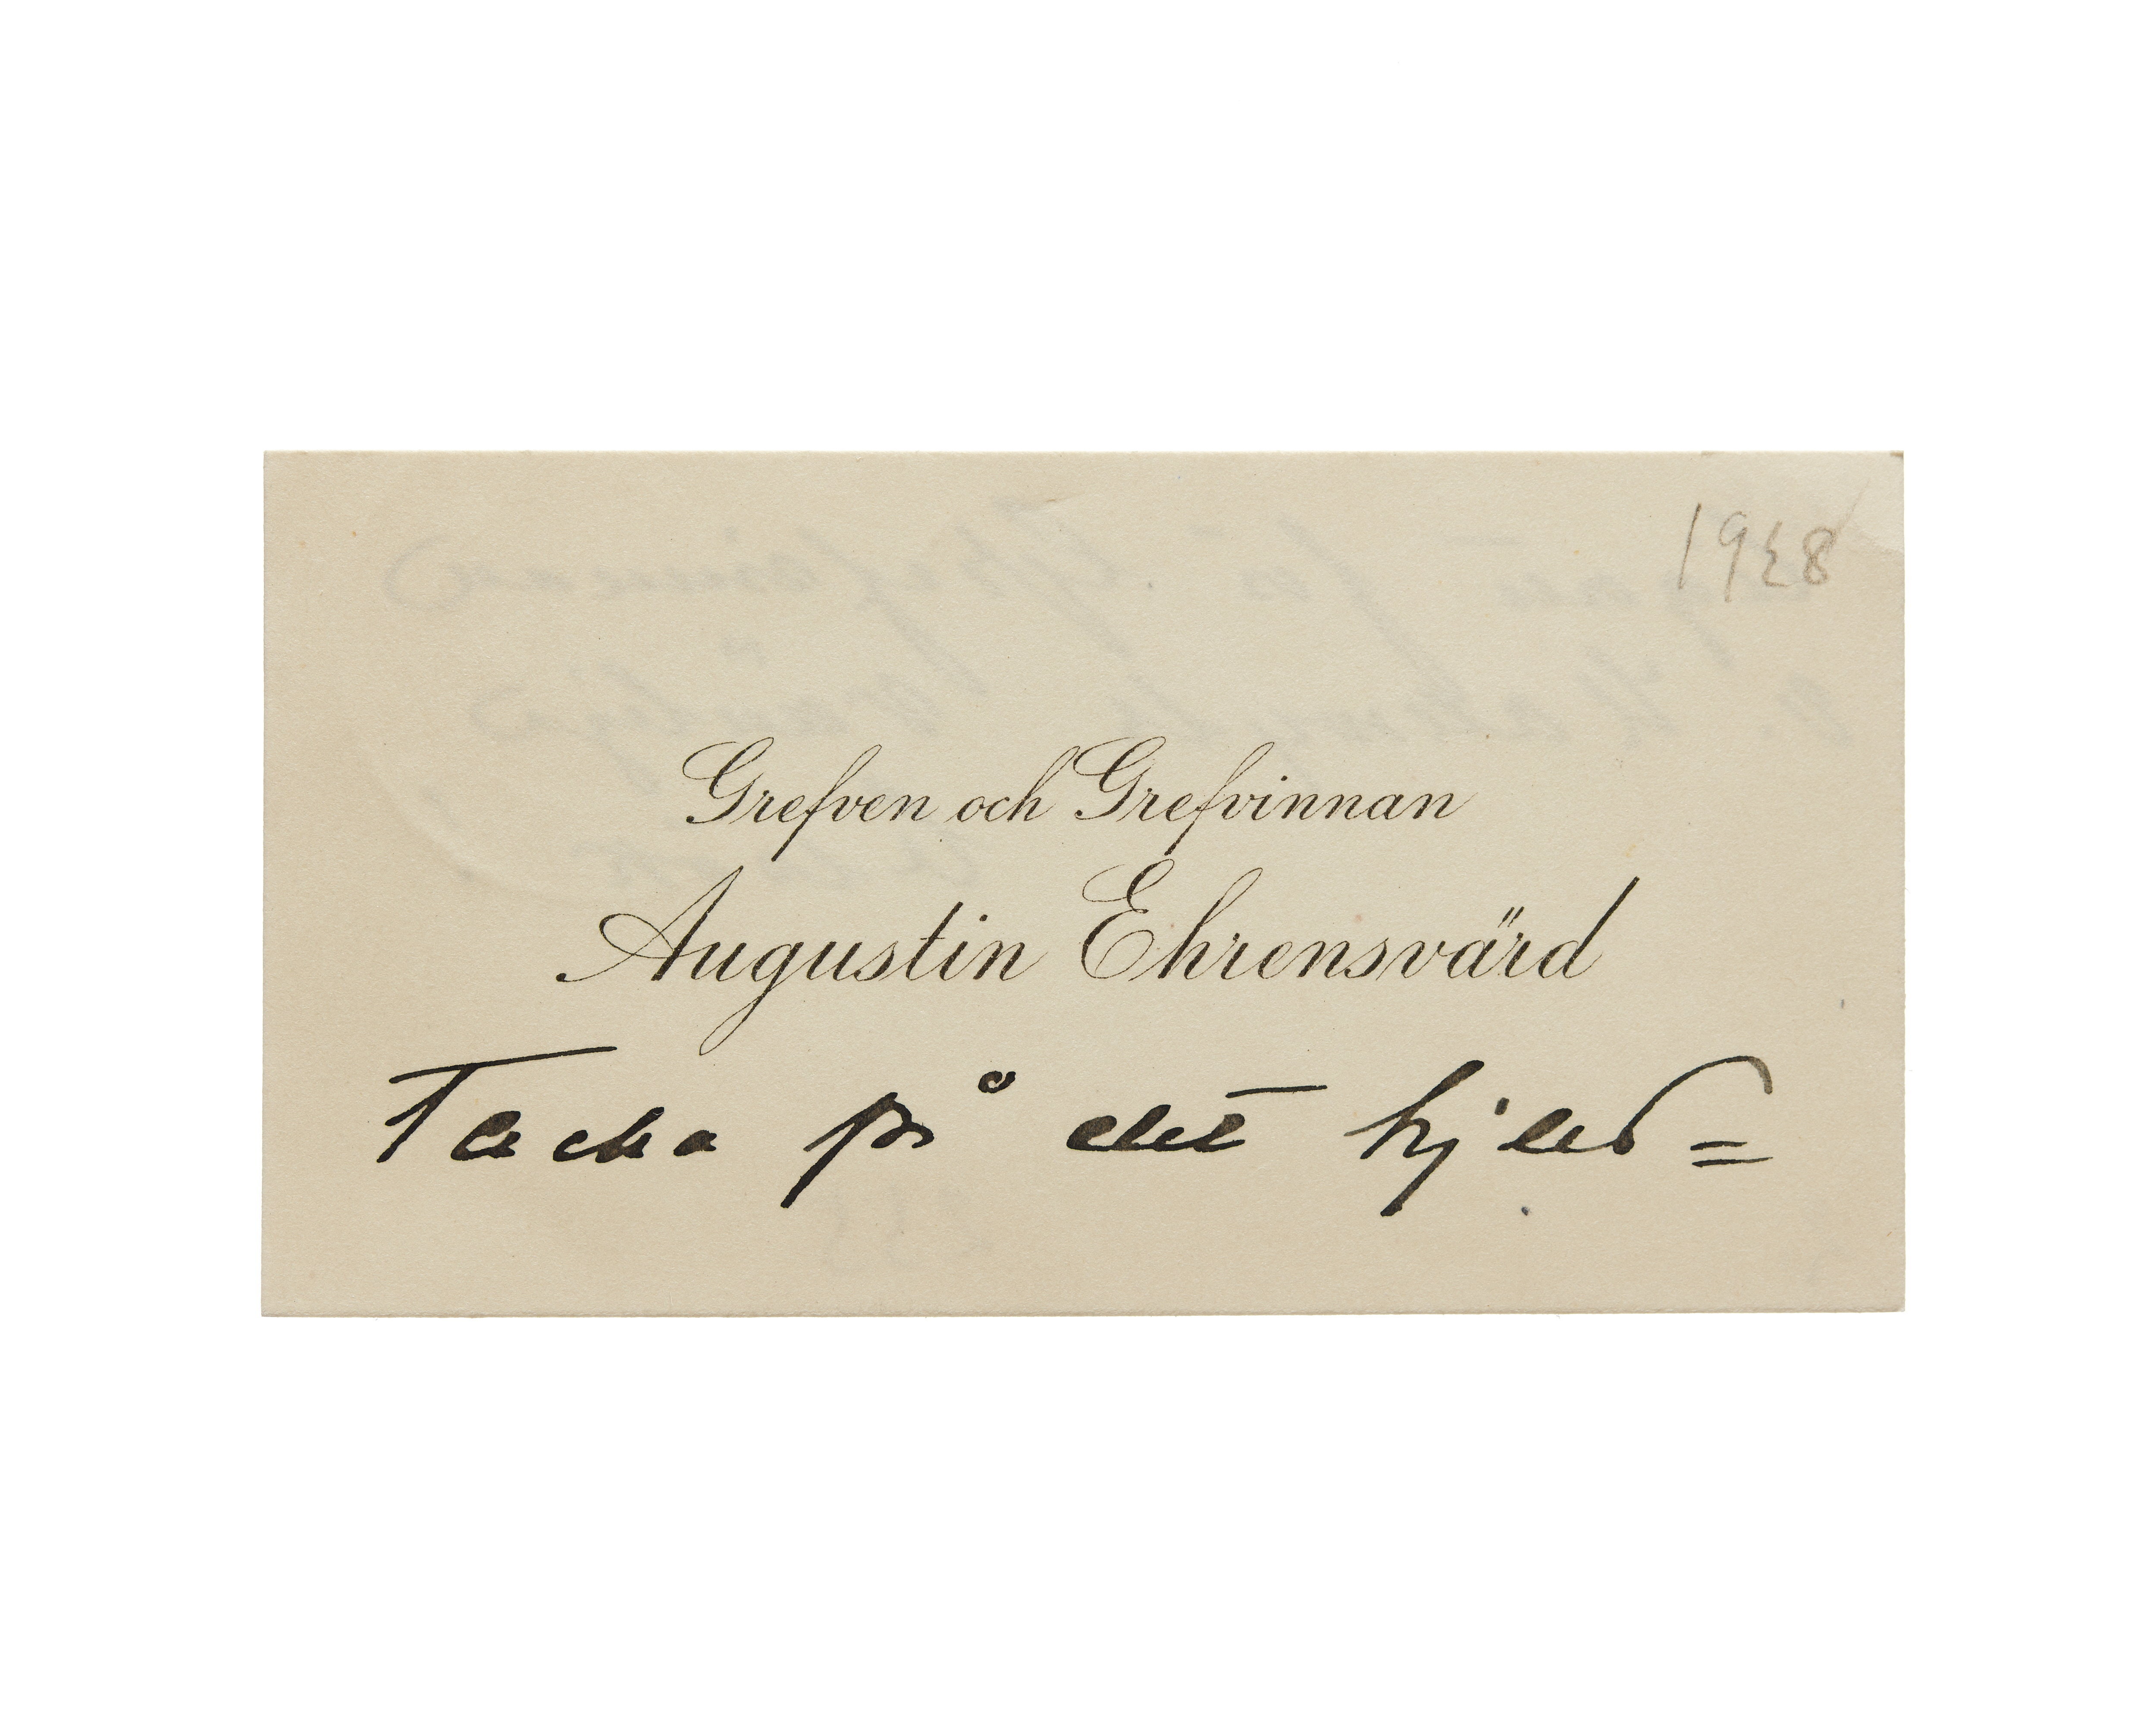 1938
Grefven och Grefvinnan
Augustin Ehrensvärd
Tacka på det hjert=